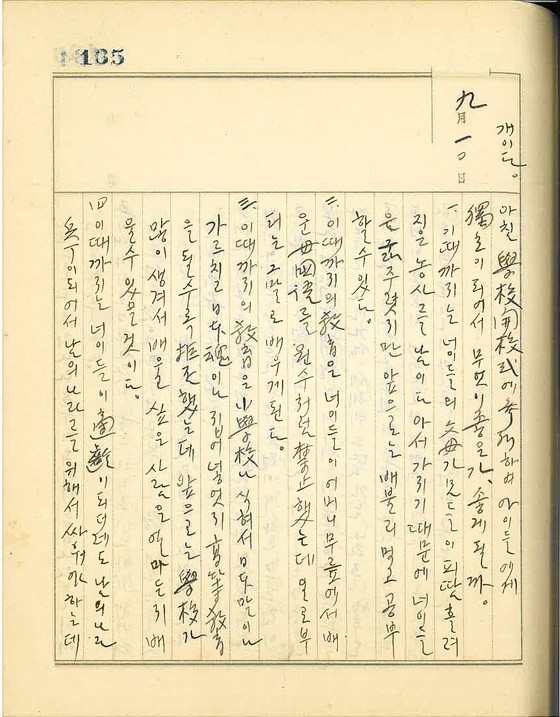 185
개이다。
九月一〇日
아침 學校開校式에 參
하야 아이들에게
獨立이 되어서 무엇이 좋은가、좋게 될까。
一、이때까지는 너이들의 父母가 피땀 흘려
지은 농사를 남이 다 아서가기 때문에 너이들
을 주렷지만 앞으로는 배불리 먹고 공부
할 수 있다。
二、이때까지의 敎育은 너이들이 어머니 무릎에서 배
운 母國語를 원수처럼 禁止했는데 오로부
터는 그 말로 배우게 된다。
三、이때까지의 敎育은 小學校나 식혀서 日本말이나
가르치고 日本魂이나 집어넣엇지 高等敎育
을 될수록 拒否했는데 앞으로는 學校가
많이 생겨서 배우고 싶은 사람은 얼마든지 배
울 수 있을 것이다。
四、이때까지는 너이들이 되더래도 남의 나라
兵隊이 되어서 남의 나라를 위해서 싸워야 하는데